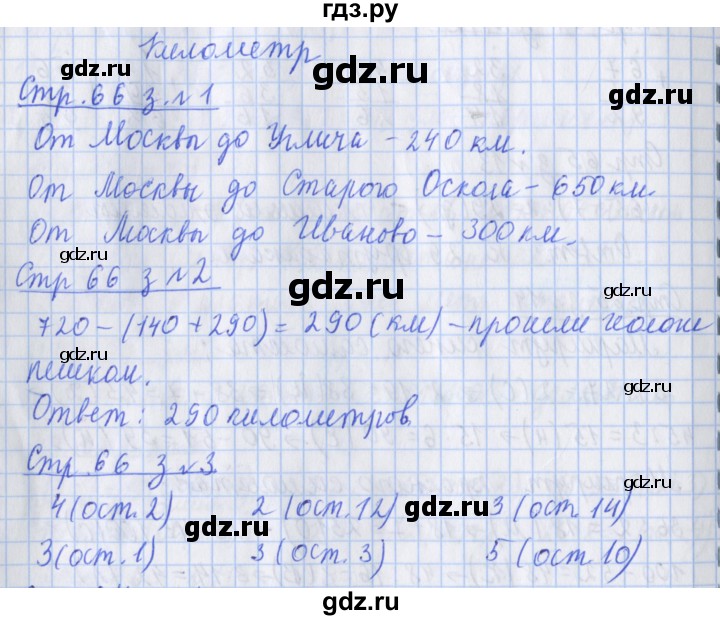 гдз.ру
Километр
gdz.ru
gdz.ru
gdz.ru
Стр. 66 з. №1
От Москвы до Углича – 240 км.
gdz.ru
От Москвы до Старого Оскола – 650 км.
gdz.ru
От Москвы до Иваново – 300 км.
gdz.ru
Стр 66 з №2
gdz.ru
gdz.ru
720 – (140 + 290) = 290 (км) – прошли
gdz.ru
пешком.
gdz.ru
Ответ: 290 километров
gdz.ru
Стр. 66 з №3.
4 (ост. 2) 2 (ост. 12) 3 (ост. 14)
gdz.ru
gdz.ru
gdz.ru
3 (ост. 1) 3 (ост. 3) 5 (ост. 10)
gdz.ru
gdz.ru
gdz.ru
gdz.ru